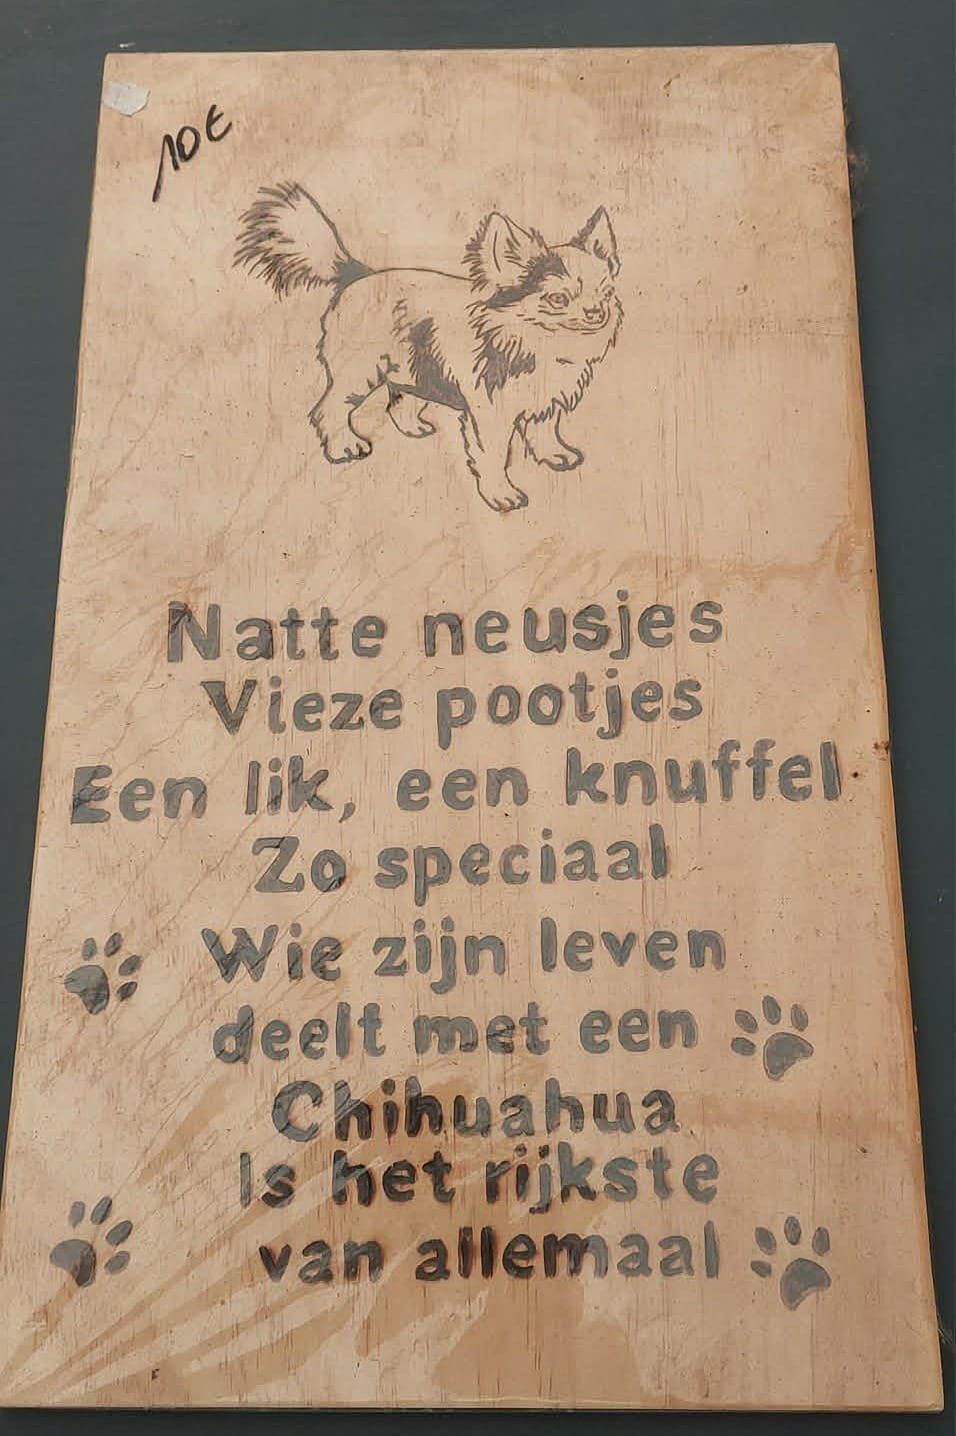 10€
Natte neusjes
Vieze pootjes
Een lik, een knuffel
Zo speciaal
Wie zijn leven
deelt met een
Chihuahua
Is het rijkste
van allemaal